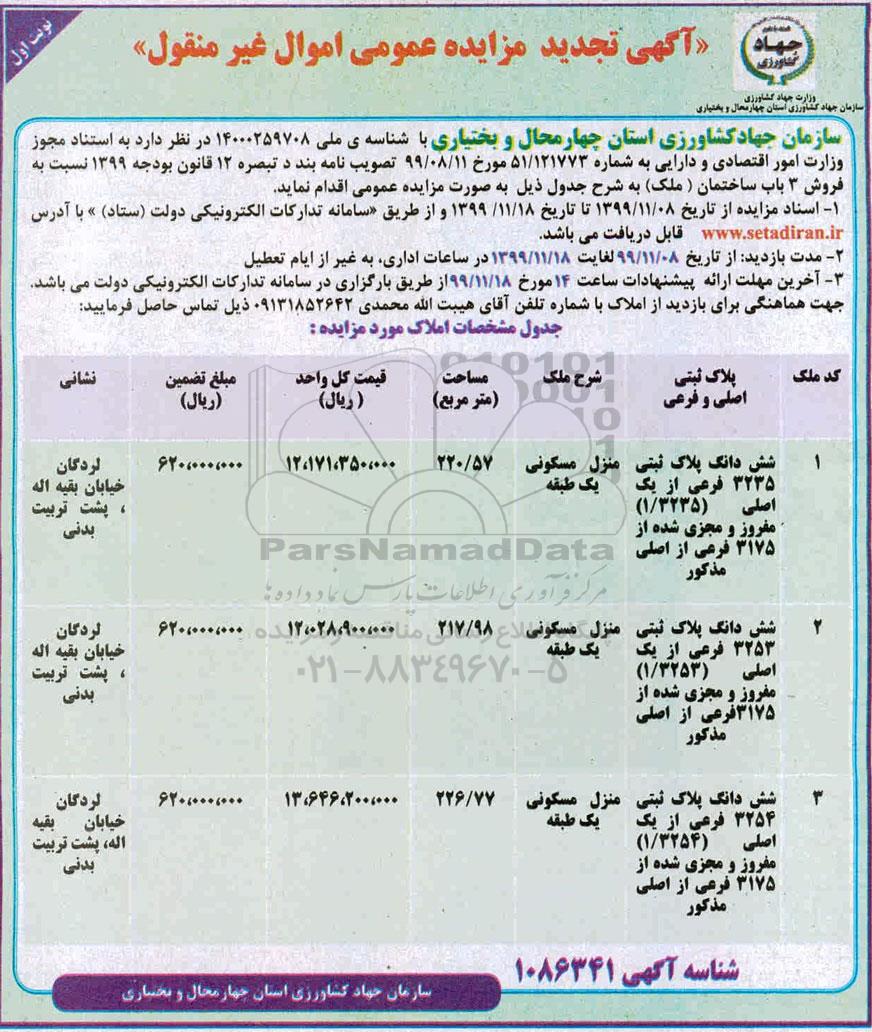 نوبت اول
«آگهی تجدید مزایده عمومی اموال غیر منقول»
جهاد
کشاورزی
وزارت جهاد کشاورزی
سازمان جهاد کشاورزی استان چهارمحال و بختیاری
سازمان جهادکشاورزی استان چهارمحال و بختیاری با شناسه ی ملی ۱۴۰۰۰۲۵۹۷۰۸ در نظر دارد به استناد مجوز
وزارت امور اقتصادی و دارایی به شماره ۵۱/۱۲۱۷۷۳ مورخ ۹۹/۰۸/۱۱ تصویب نامه بند د تبصره ۱۲ قانون بودجه ۱۳۹۹ نسبت به
فروش ۳ باب ساختمان ( ملک) به شرح جدول ذیل به صورت مزایده عمومی اقدام نماید.
۱- اسناد مزایده از تاریخ ۱۳۹۹/۱۱/۰۸ تا تاریخ ۱۳۹۹/۱۱/۱۸ و از طریق «سامانه تدارکات الکترونیکی دولت (ستاد) » با آدرس
www.setadiran.ir قابل دریافت می باشد.
۲- مدت بازدید: از تاریخ ۹۹/۱۱/۰۸ لغایت ۱۳۹۹/۱۱/۱۸ در ساعات اداری، به غیر از ایام تعطیل
۳- آخرین مهلت ارائه پیشنهادات ساعت ۱۴ مورخ ۹۹/۱۱/۱۸ از طریق بارگزاری در سامانه تدارکات الکترونیکی دولت می باشد.
جهت هماهنگی برای بازدید از املاک با شماره تلفن آقای هیبت الله محمدی ۰۹۱۳۱۸۵۲۶۴۲ ذیل تماس حاصل فرمایید:
جدول مشخصات املاک مورد مزایده :
کد ملک
پلاک ثبتی
اصلی و فرعی
شرح ملک
مساحت
(متر مربع)
قیمت کل واحد
( ریال)
مبلغ تضمین
(ریال)
نشانی
۱
شش دانگ پلاک ثبتی
۳۲۳۵ فرعی از یک
اصلی (۱/۳۲۳۵)
مفروز و مجزی شده از
۳۱۷۵ فرعی از اصلی
مذکور
منزل مسکونی
یک طبقه
۲۲۰/۵۷
۱۲،۱۷۱،۳۵۰،۰۰۰
۶۲۰،۰۰۰،۰۰۰
لردگان
خیابان بقیه اله
، پشت تربیت
بدنی
ParsNamadData
مرکز فرآوری اطلاعات پارس نماد داده ها
۲
شش دانگ پلاک ثبتی
۳۲۵۳ فرعی از یک
اصلی (۱/۳۲۵۳)
مفروز و مجزی شده از
۳۱۷۵فرعی از اصلی
مذکور
منزل مسکونی
یک طبقه
۲۱۷/۹۸
۱۲،۰۲۸،۹۰۰،۰۰۰
۶۲۰،۰۰۰،۰۰۰
لردگان
خیابان بقیه اله
، پشت تربیت
بدنی
۰۲۱-۸۸۳۴۹۶۷۰-۵
۳
شش دانگ پلاک ثبتی
۳۲۵۴ فرعی از یک
اصلی (۱/۳۲۵۴)
مفروز و مجزی شده از
۳۱۷۵ فرعی از اصلی
مذکور
منزل مسکونی
یک طبقه
۲۲۶/۷۷
۱۳،۶۴۶،۲۰۰،۰۰۰
۶۲۰،۰۰۰،۰۰۰
لردگان
خیابان بقیه
اله، پشت تربیت
بدنی
شناسه آگهی ۱۰۸۶۳۴۱
سازمان جهاد کشاورزی استان چهارمحال و بختیاری